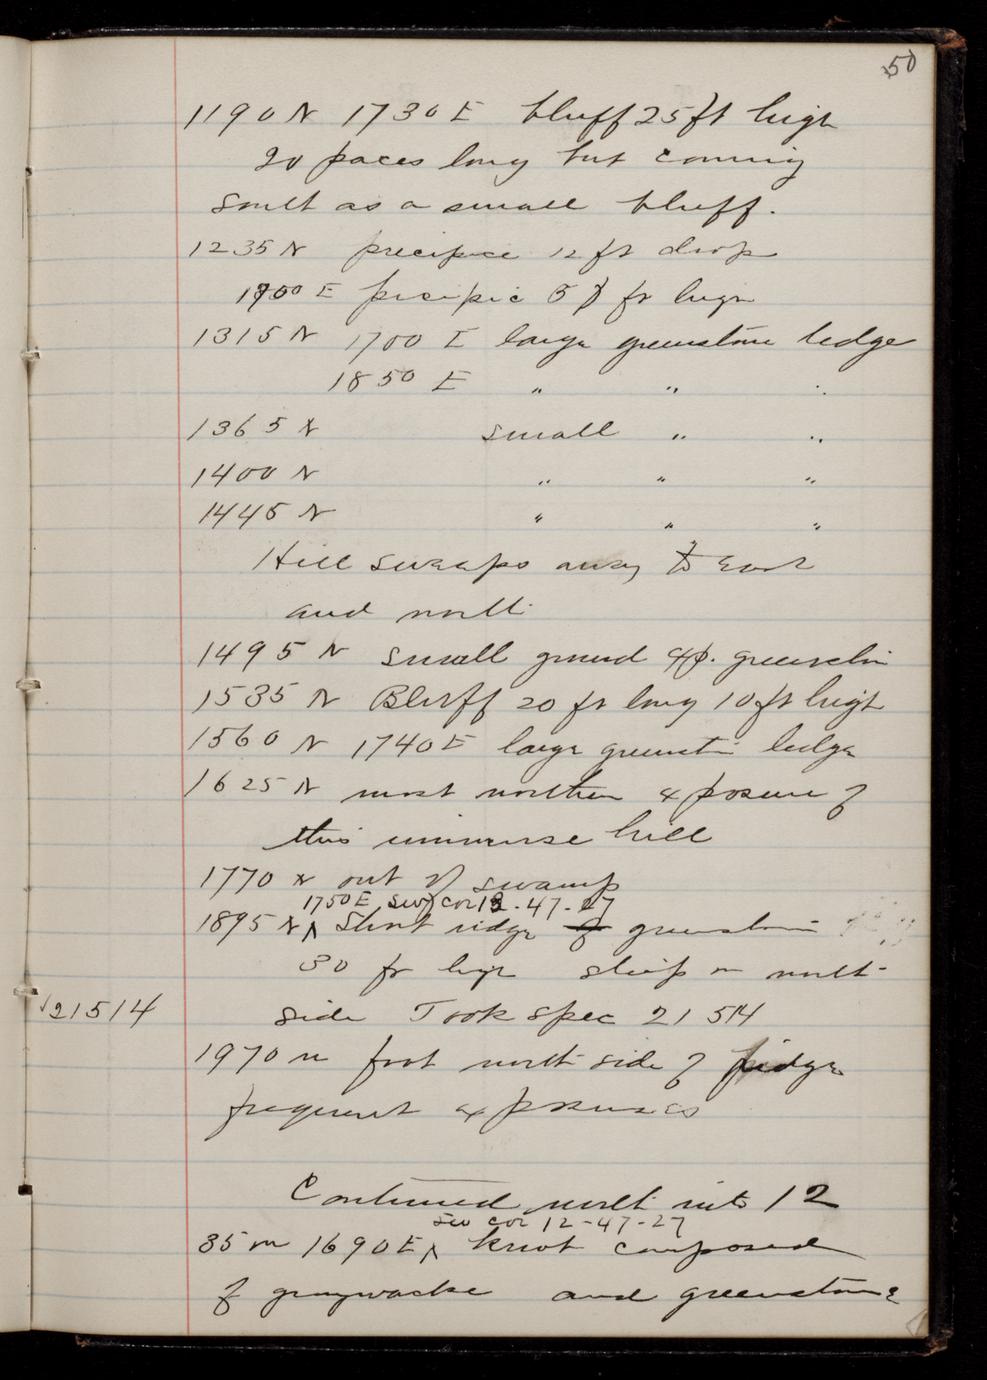 50
1190 N 1730 E bluff 25 ft high
20 paces long but coming
south as a small bluff.
1235 N precipice 12 ft drop
1750 E precipic 5 ft high
1315 N 1700 E large greenstone ledge
1850 E " " "
1365 N small " "
1400 N " " "
1445 N " " "
Hill sweeps away to East
and north
1495 N small ground exp. greenston
1535 N Bluff 20 ft long 10 ft high
1560 N 1740 E large greenston ledge
1625 N most northern exposure of
this immense hill
1770 N out of swamp
1750 E SW cor 13-47-27
1895 N ^ Short ridge greenstone
30 ft high steep on north
side Took spec 21514
21514
1970 N foot north side of ridge
frequent exposures
Continued north into 12
SW cor 12-47-27
35 N 1690 E ^ knob composed
of graywacke and greenstone